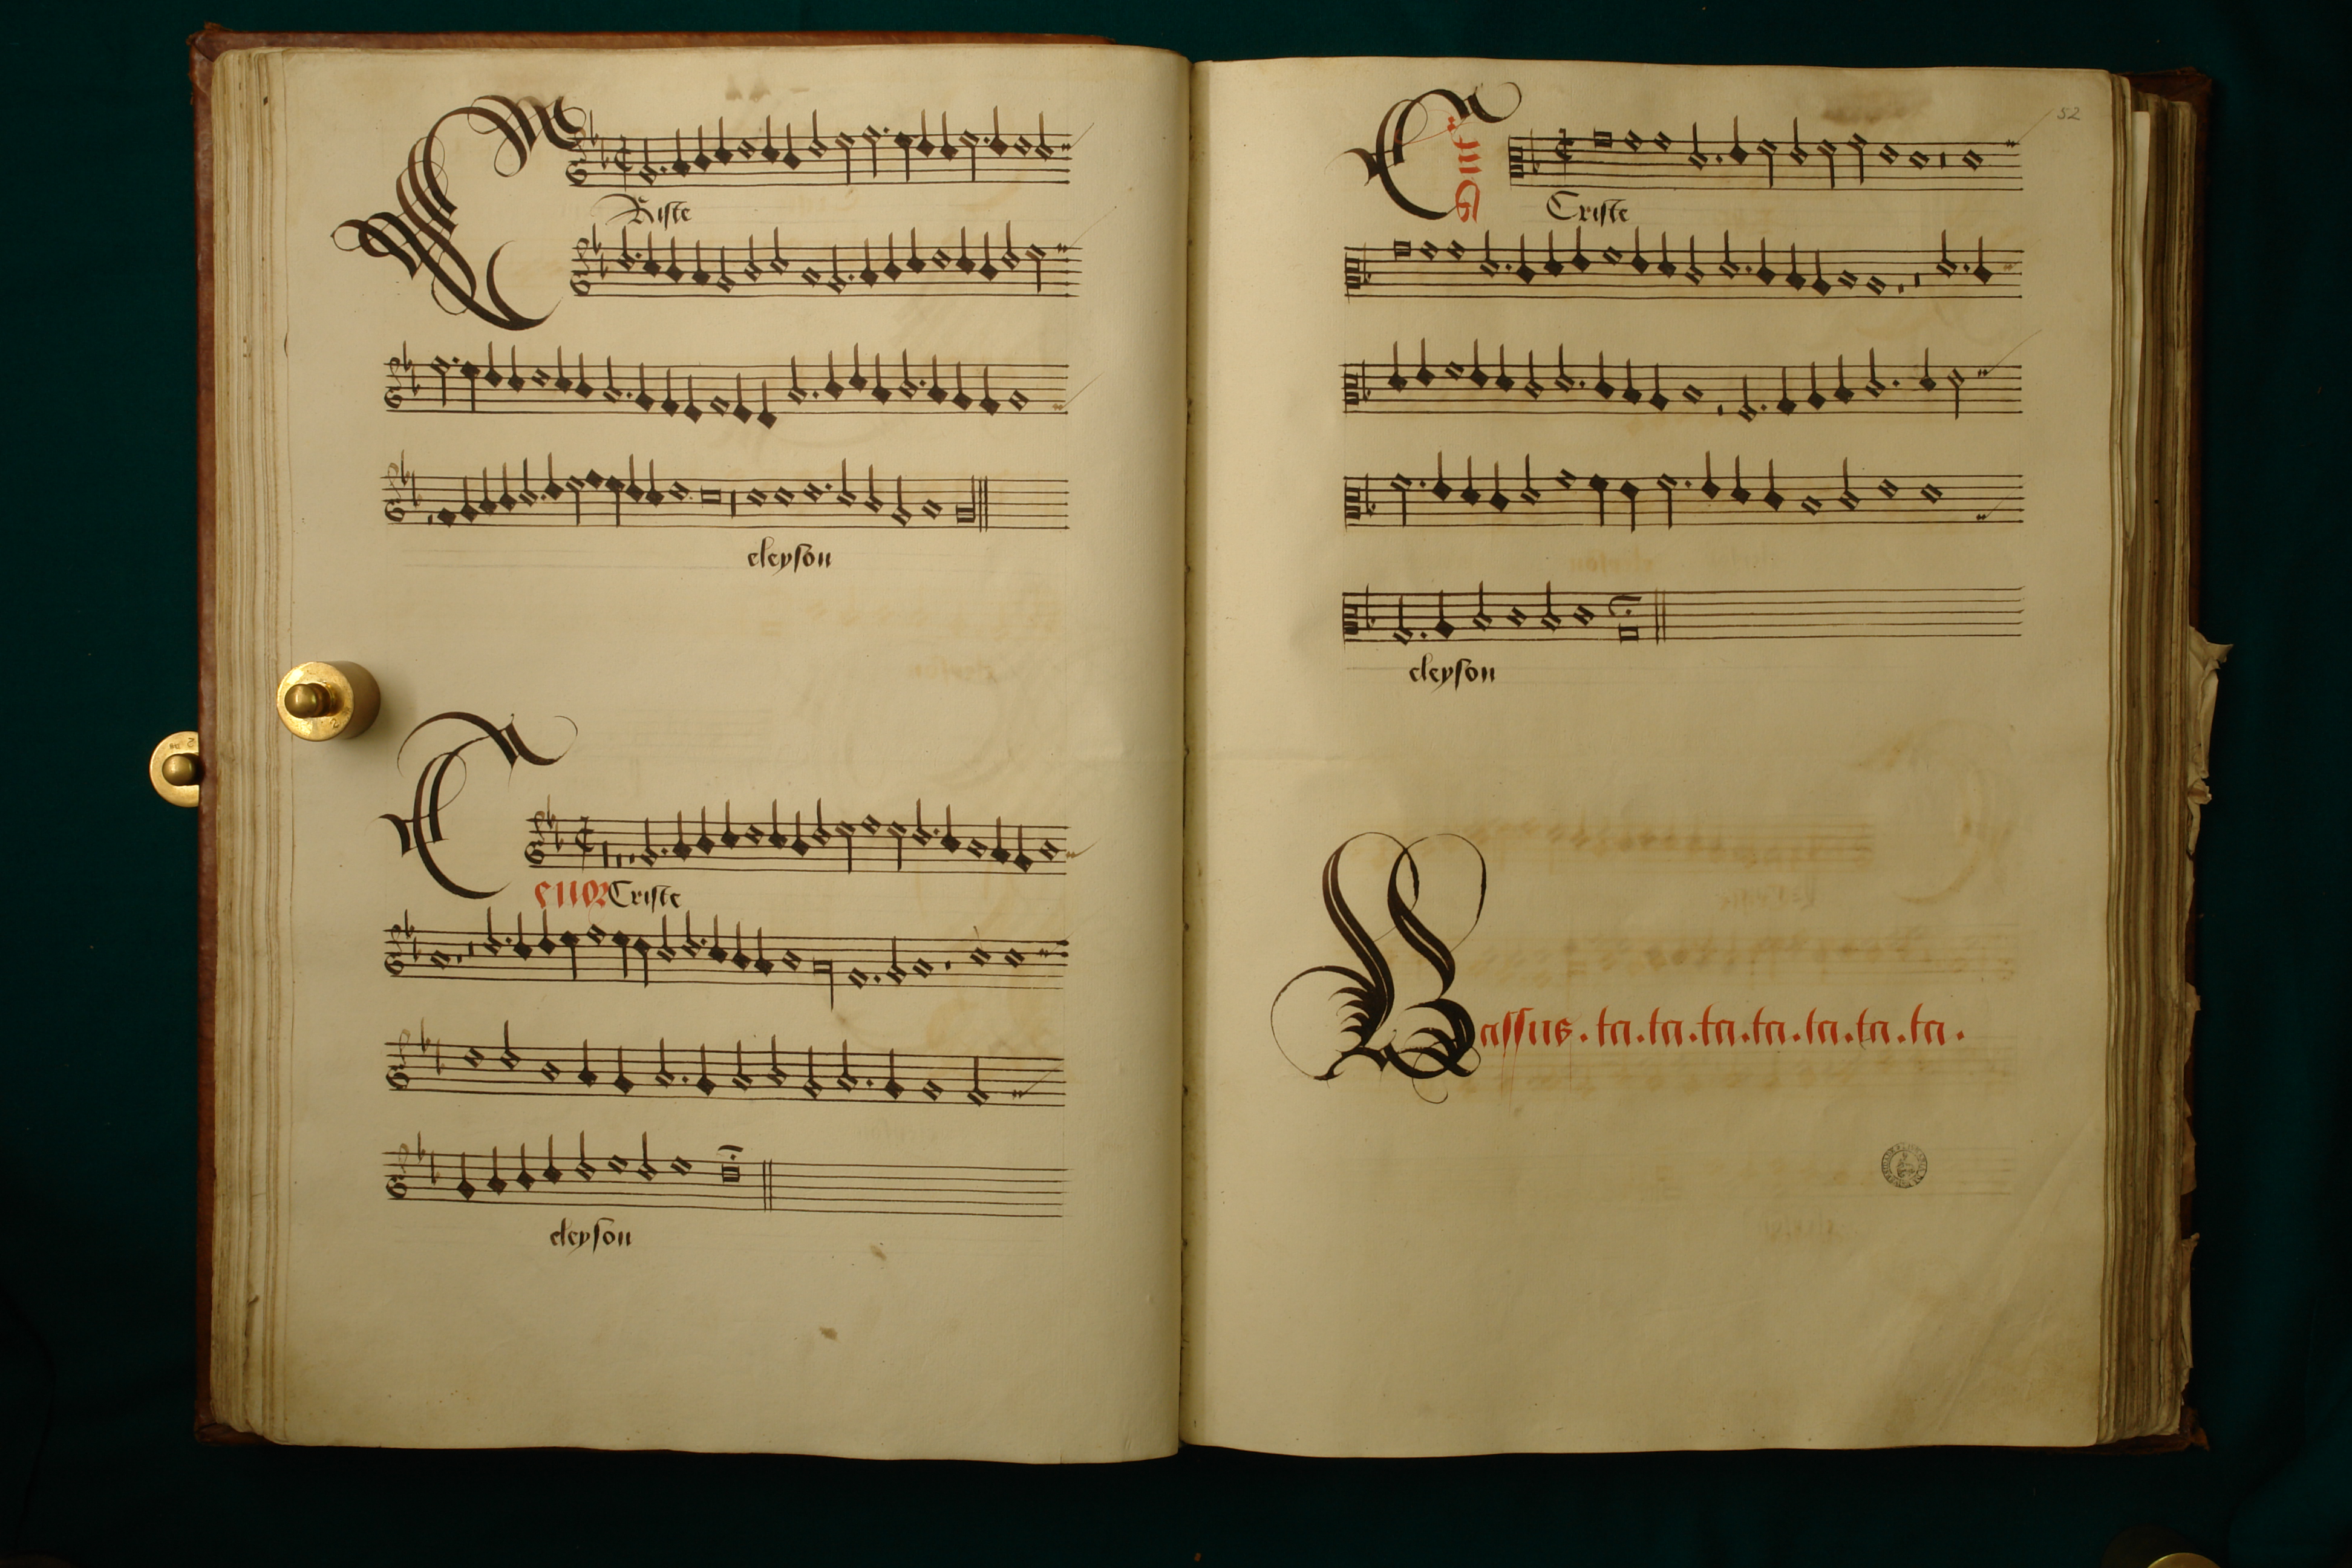 CRiste
eleyson
Tenor Criste
eleyson
52
Criste
eleyson
Bassus . ta . ta . ta . ta . ta . ta . ta .